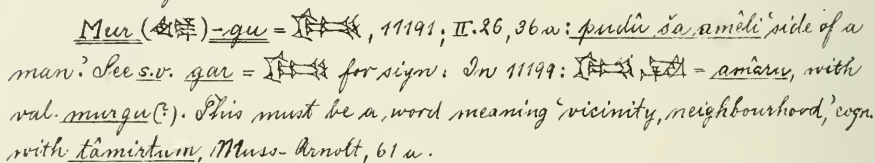 Mur ( )-gu = , 11191; II. 26, 36 a: pudû ša amêli 'side of a
man.' See s.v. gar = for sign. In 11199: = amâru, with
val. murgu(?). This must be a word meaning 'vicinity, neighbourhood,' cogn.
with tâmirtum, Muss-Arnolt, 61 a.